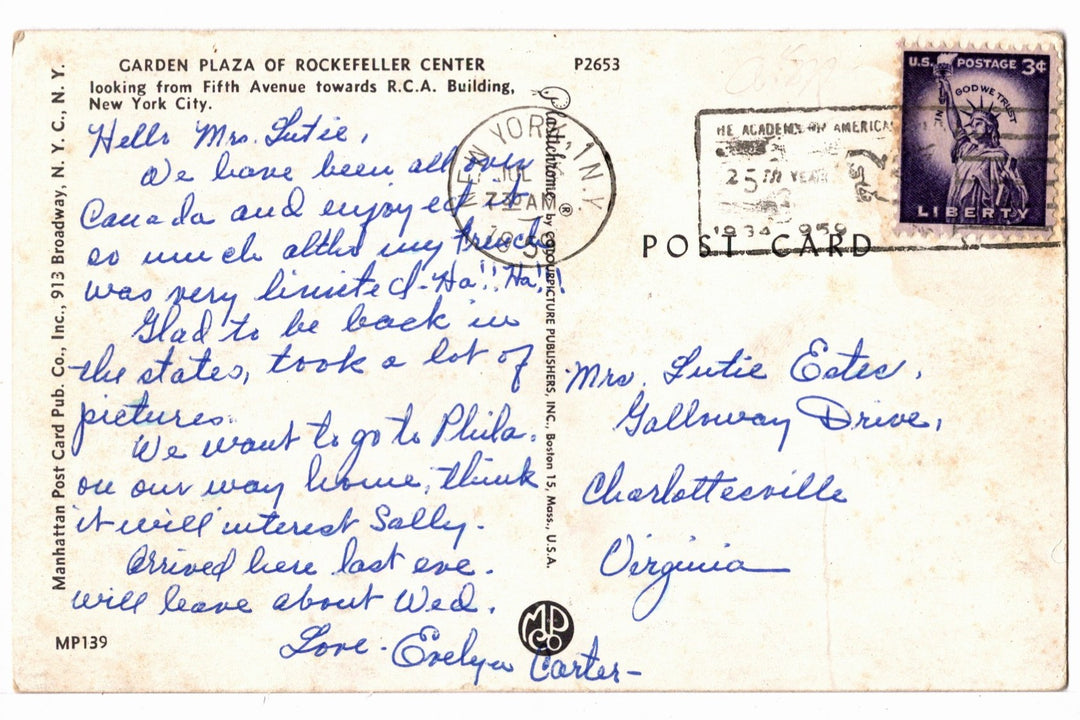 GARDEN PLAZA OF ROCKEFELLER CENTER
looking from Fifth Avenue towards R.C.A. Building,
New York City.
P2653
Hello Mrs. Lutie,
We have been all over
Canada and enjoyed it
so much altho my french
was very limited - Ha!! Ha!!
Glad to be back in
the states, took a lot of
pictures.
We want to go to Phila.
on our way home, think
it will interest Sally.
Arrived here last eve.
will leave about Wed.
Love - Evelyn Carter -
MP139
Manhattan Post Card Pub. Co., Inc., 913 Broadway, N. Y. C., N. Y.
Plastichrome ® by COLOURPICTURE PUBLISHERS, INC., Boston 15, Mass., U.S.A.
MP
Co
NEW YORK, 1 N.Y.
JUL
AM
1959
HE ACADEMY AMERICA
25TH YEAR
1934 959
U.S. POSTAGE 3¢
IN GOD WE TRUST
LIBERTY
POST CARD
Mrs. Lutie Estes,
Galloway Drive,
Charlottesville
Virginia